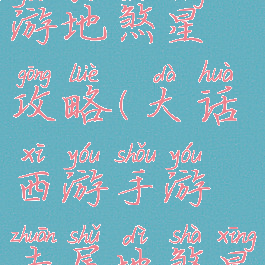 游地煞星
gōng lüè dà huà
攻略(大话
xī yóu shǒu yóu
西游手游
zhuān shǔ dì shà xīng
专属地煞星